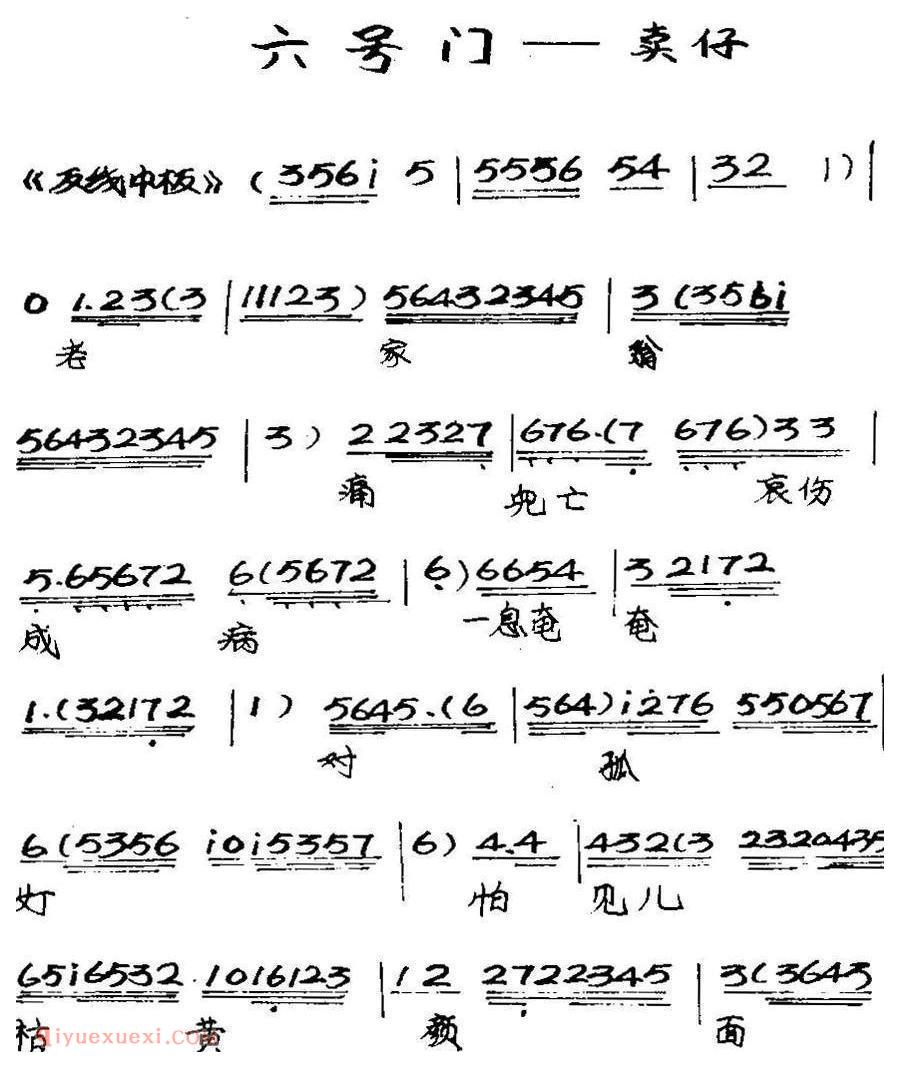 六号门——卖仔
《反线中板》(356i 5 | 5536 54 | 32 1) |
0 1.23(3 | 11123) 56432345 | 3 (356i
老 家 翁
56432345 | 3) 2 2327 | 676.(7 676)33 |
痛 兇亡 哀伤
5.65672 6(5672 | 6)6654 | 3 2172
成 病 一息奄 奄
1.(32172 | 1) 5645.(6 | 564)i276 550567 |
对 孤
6(5356 i0i5357 | 6) 4.4 | 432(3 2320435
灯 怕 见儿
65i6532 1016123 | 12 2722345 | 3(3643
枯 黄 颜 面
qiyuexuexi.com